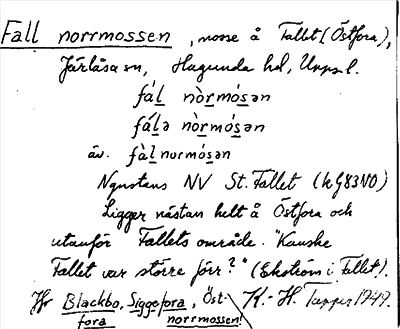 Fall norrmossen, mosse å Fallet (Östfora),
Järlåsa sn, Hagunda hd, Uppsl.
fá̀l nòrmósən
fá̀lə nòrmósən
äv. fà̀l normósən
NV St. Fallet (kg83NO)
Ligger nästan helt å Östfora och
utanför Fallets område. "Kanske
Fallet var större förr?" (Ekström i Fallet).
Jfr Blackbo, Siggefora, Öst- K.-H. Tapper 1949.
fora norrmossen!